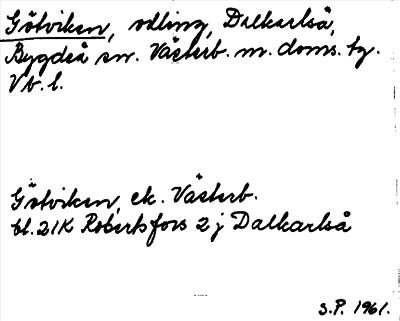 Götviken, odling, Dalkarlså,
Bygdeå sn. Västerb. m. doms. tg.
Vb. l.
Götviken, ek. Västerb.
bl. 21K Robertsfors 2 j Dalkarlså
S.P. 1961.